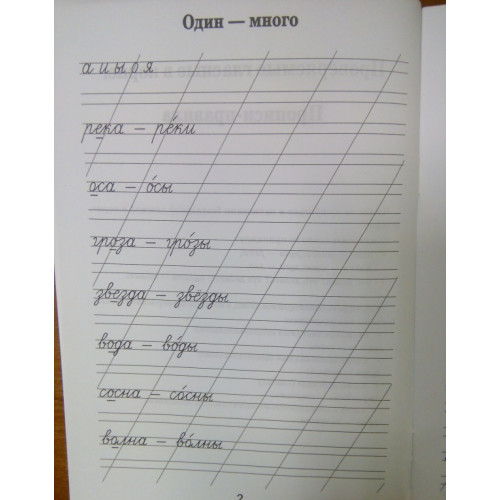 Один — много
а и ы о я
река — ре́ки
оса — о́сы
гроза — гро́зы
звезда — звёзды
вода — во́ды
сосна — со́сны
волна — во́лны